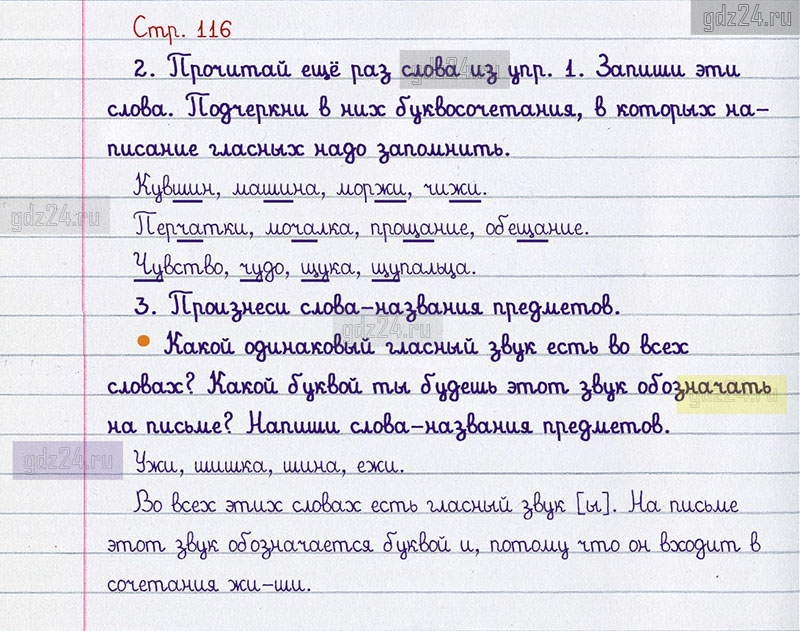 gdz24.ru
Стр. 116
2. Прочитай ещё раз слова из упр. 1. Запиши эти
слова. Подчеркни в них буквосочетания, в которых на-
писание гласных надо запомнить.
Кувшин, машина, моржи, чижи.
gdz24.ru
Перчатки, мочалка, прощание, обещание.
Чувство, чудо, щука, щупальца.
3. Произнеси слова-названия предметов.
gdz24.ru
• Какой одинаковый гласный звук есть во всех
словах? Какой буквой ты будешь этот звук обозначать
gdz24.ru
на письме? Напиши слова-названия предметов.
gdz24.ru
Ужи, шишка, шина, ежи.
Во всех этих словах есть гласный звук [ы]. На письме
этот звук обозначается буквой и, потому что он входит в
сочетания жи-ши.